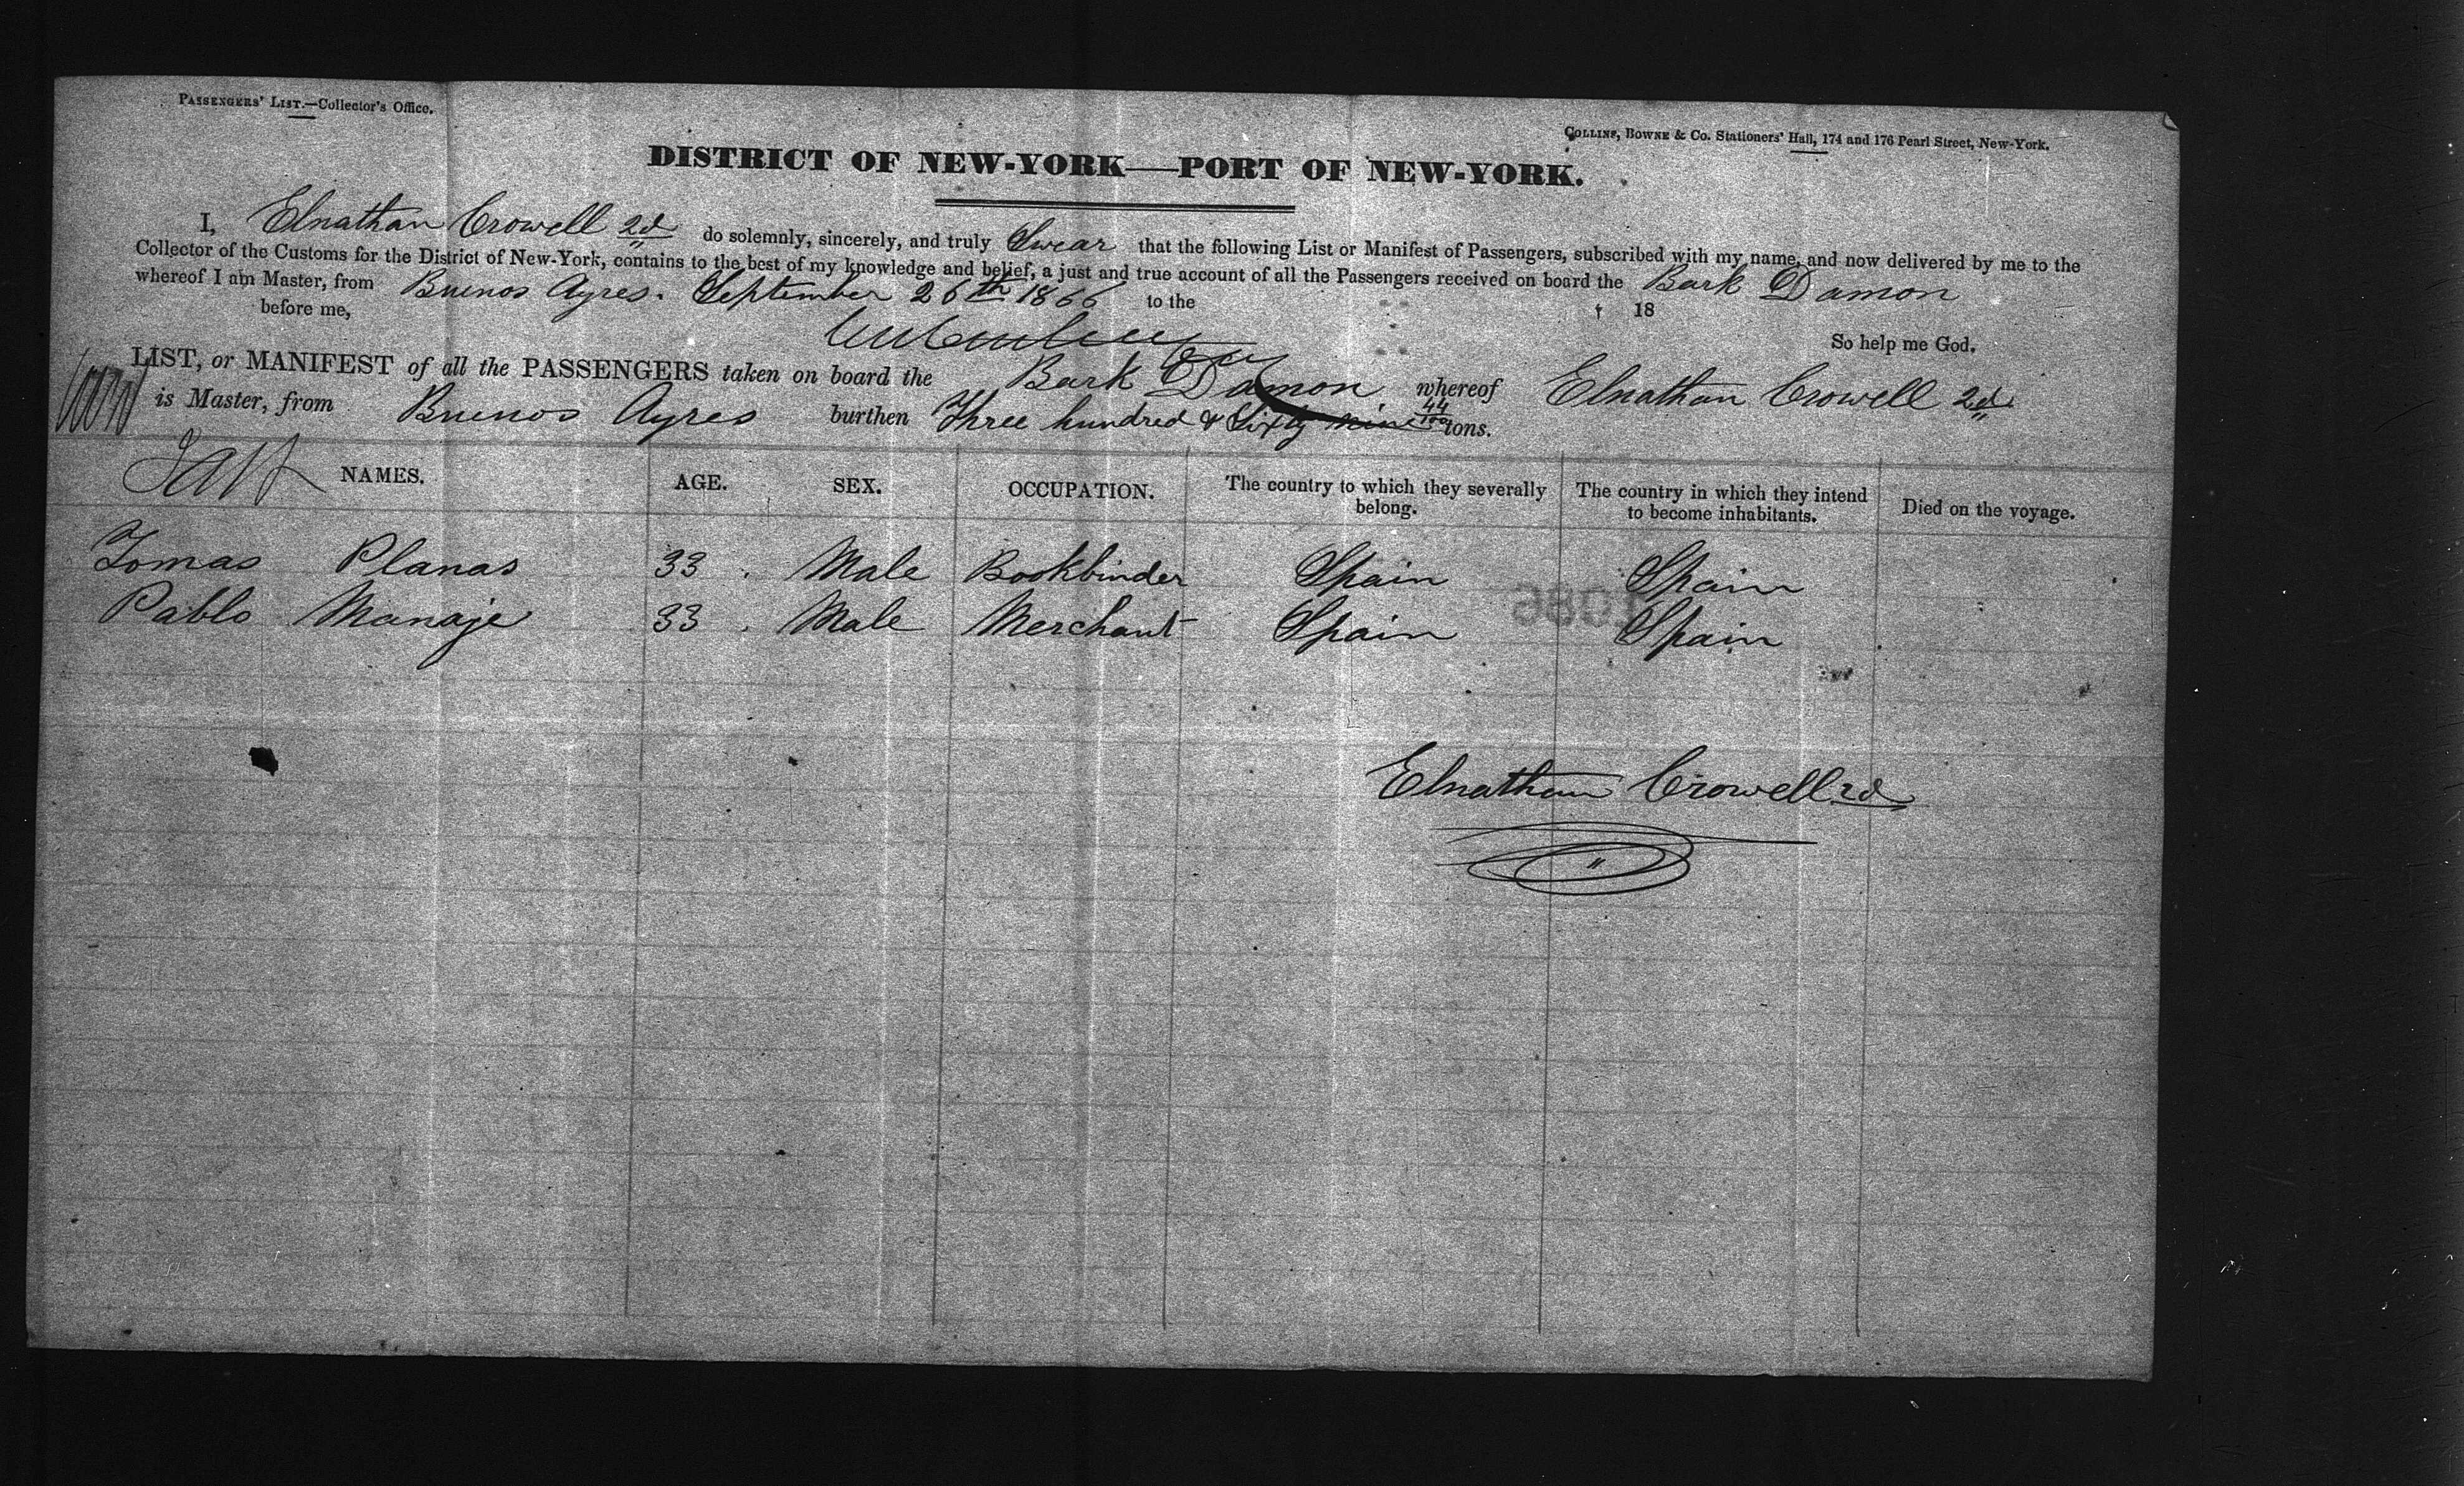 PASSENGERS' LIST.—Collector's Office.
COLLINS, BOWNE & Co. Stationers' Hall, 174 and 176 Pearl Street, New-York.
DISTRICT OF NEW-YORK—PORT OF NEW-YORK.
I, Elnathan Crowell 2d do solemnly, sincerely, and truly Swear that the following List or Manifest of Passengers, subscribed with my name, and now delivered by me to the
Collector of the Customs for the District of New-York, contains to the best of my knowledge and belief, a just and true account of all the Passengers received on board the Bark Damon
whereof I am Master, from Buenos Ayres. September 26th 1866 to the 18
before me,
So help me God.
LIST, or MANIFEST of all the PASSENGERS taken on board the Bark Damon whereof Elnathan Crowell 2d
is Master, from Buenos Ayres burthen Three hundred & Sixty nine 44/100 tons.
NAMES. AGE. SEX. OCCUPATION. The country to which they severally belong. The country in which they intend to become inhabitants. Died on the voyage.
Tomas Planas 33 Male Bookbinder Spain Spain
Pablo Manaje 33 Male Merchant Spain Spain
1086
Elnathan Crowell 2d